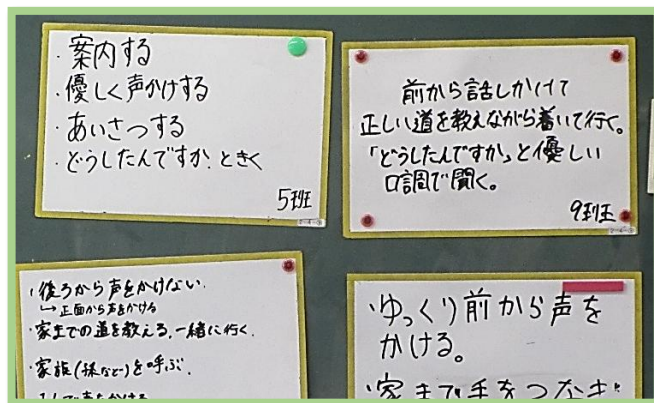 ・案内する
・優しく声かけする
・あいさつする
・どうしたんですか、ときく
5班
前から話しかけて
正しい道を教えながら着いて行く。
「どうしたんですか」と優しい
口調で聞く。
9班
・後ろから声をかけない。
↳正面から声をかける
・家までの道を教える、一緒に行く。
・家族(孫など)を呼ぶ。
・ゆっくり前から声を
かける。
・家まで手をつなぎ